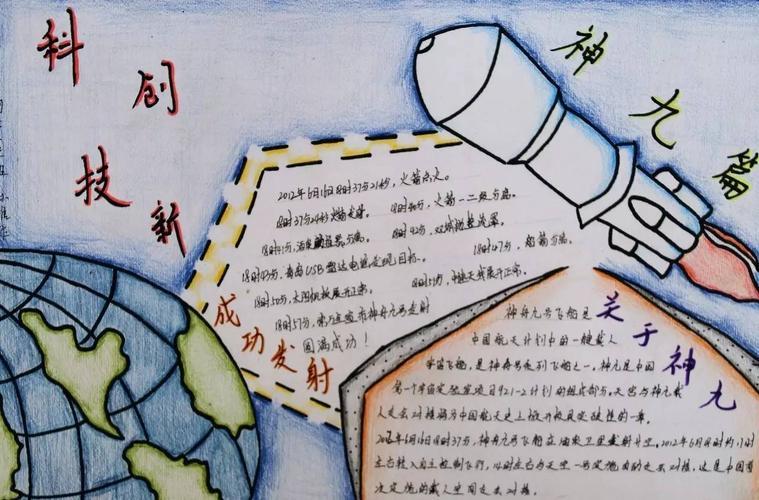 科
创
技
新
神
九
篇
2012年6月16日18时37分21秒,火箭点火。
18时37分24秒火箭起飞。
18时40分,火箭一二级分离。
18时41分,
18时42分,
18时43分,青岛USB雷达
发现目标。
18时47分,船箭分离。
18时50分,太阳帆板展开正常。
18时51分,
天线展开正常。
18时57分,
宣布神舟九号发射
圆满成功!
成
功
发
射
关
于
神
九
神舟九号飞船是
中国航天计划中的一艘载人
宇宙飞船,是神舟号系列飞船之一。神九是中国
第一个宇宙实验室项目921-2计划的组成部分,天宫与神九载
人交会对接将为中国航天史上掀开极具突破性的一章。
2012年6月16日18时37分,神舟九号飞船在酒泉卫星发射升空。2012年6月18日约11时
左右转入自主控制飞行,14时左右与天宫一号实施自动交会对接,这是中国首
次实施的载人空间交会对接。